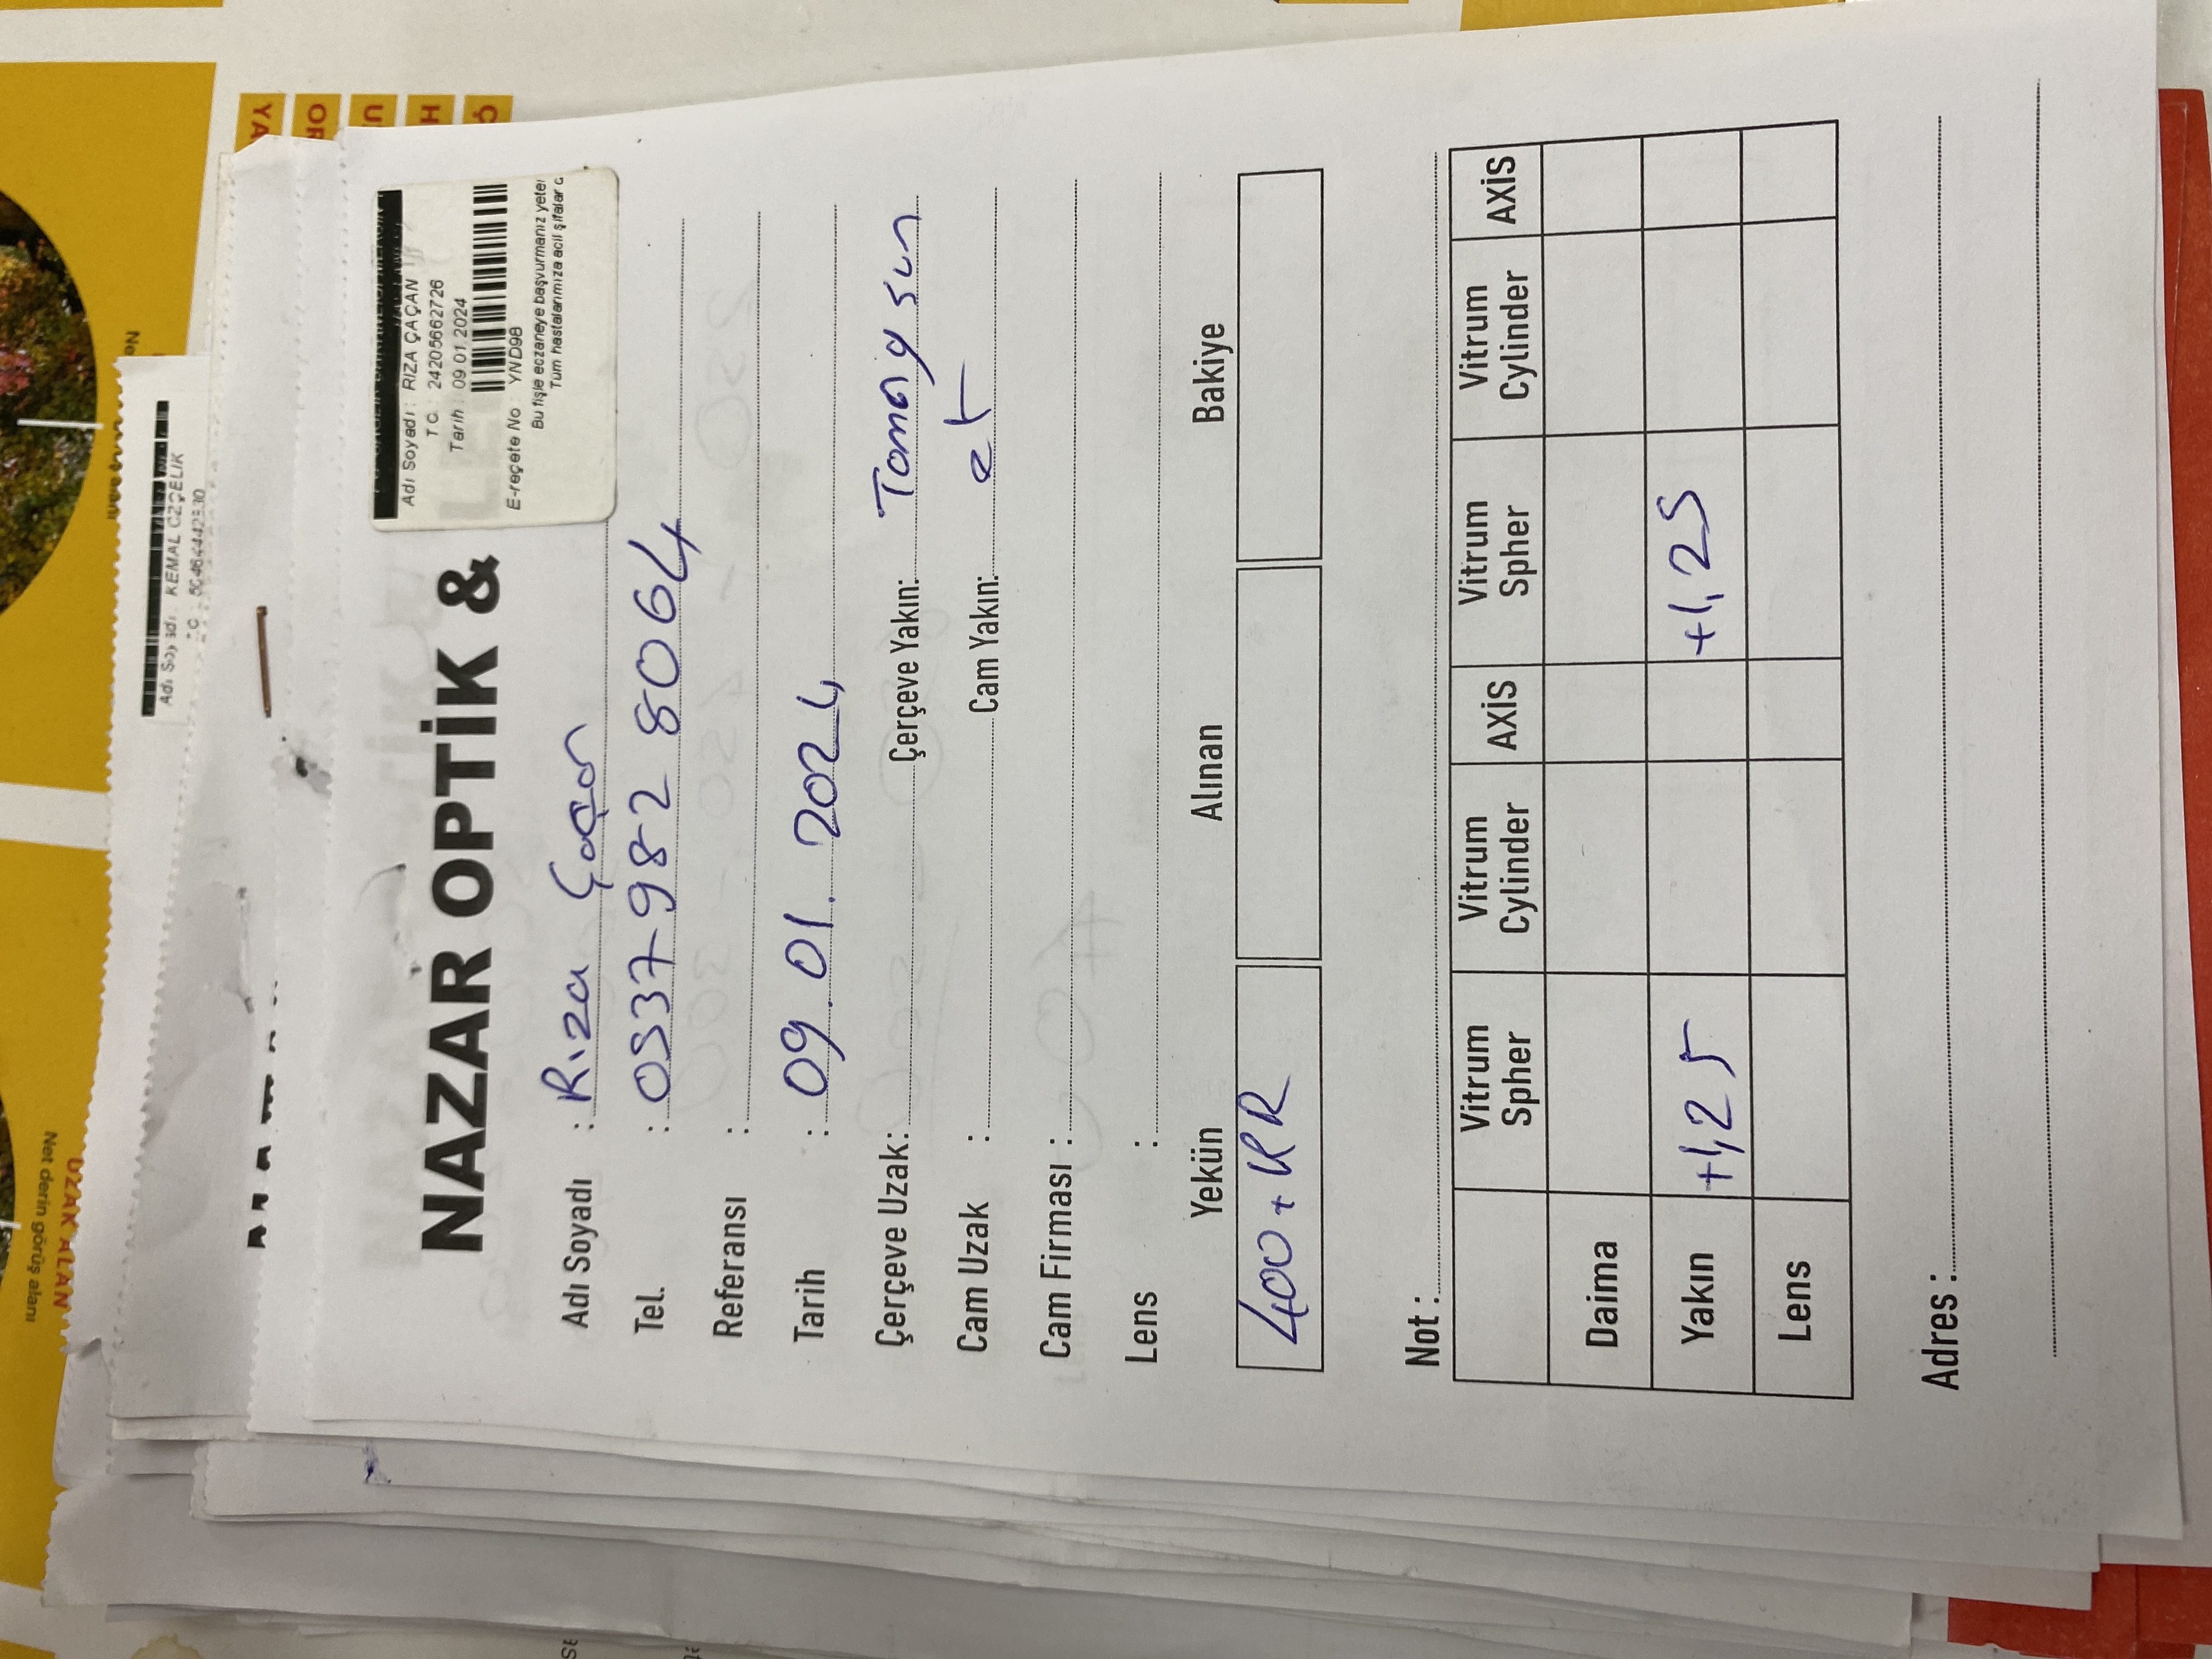 Net derin görüş alanı
UZAK ALAN
Adı Soyadı : KEMAL ÖZÇELİK
NAZAR OPTİK &
Adı Soyadı : RIZA ÇAÇAN
TC 24205662726
Tarih : 09.01.2024
E-reçete No YND98
Bu fişle eczaneye başvurmanız yeter
Tüm hastalarımıza acil şifalar
Adı Soyadı : Rıza Çaçan
Tel. : 0537 982 8064
Referansı :
Tarih : 09.01.2024
Çerçeve Uzak: Çerçeve Yakın: Tommy sun
Cam Uzak : Cam Yakın: et
Cam Firması :
Lens :
Yekün Alınan Bakiye
400 + KR
Not :
Vitrum Spher Vitrum Cylinder AXİS Vitrum Spher Vitrum Cylinder AXİS
Daima
Yakın +1,25 +1,25
Lens
Adres :